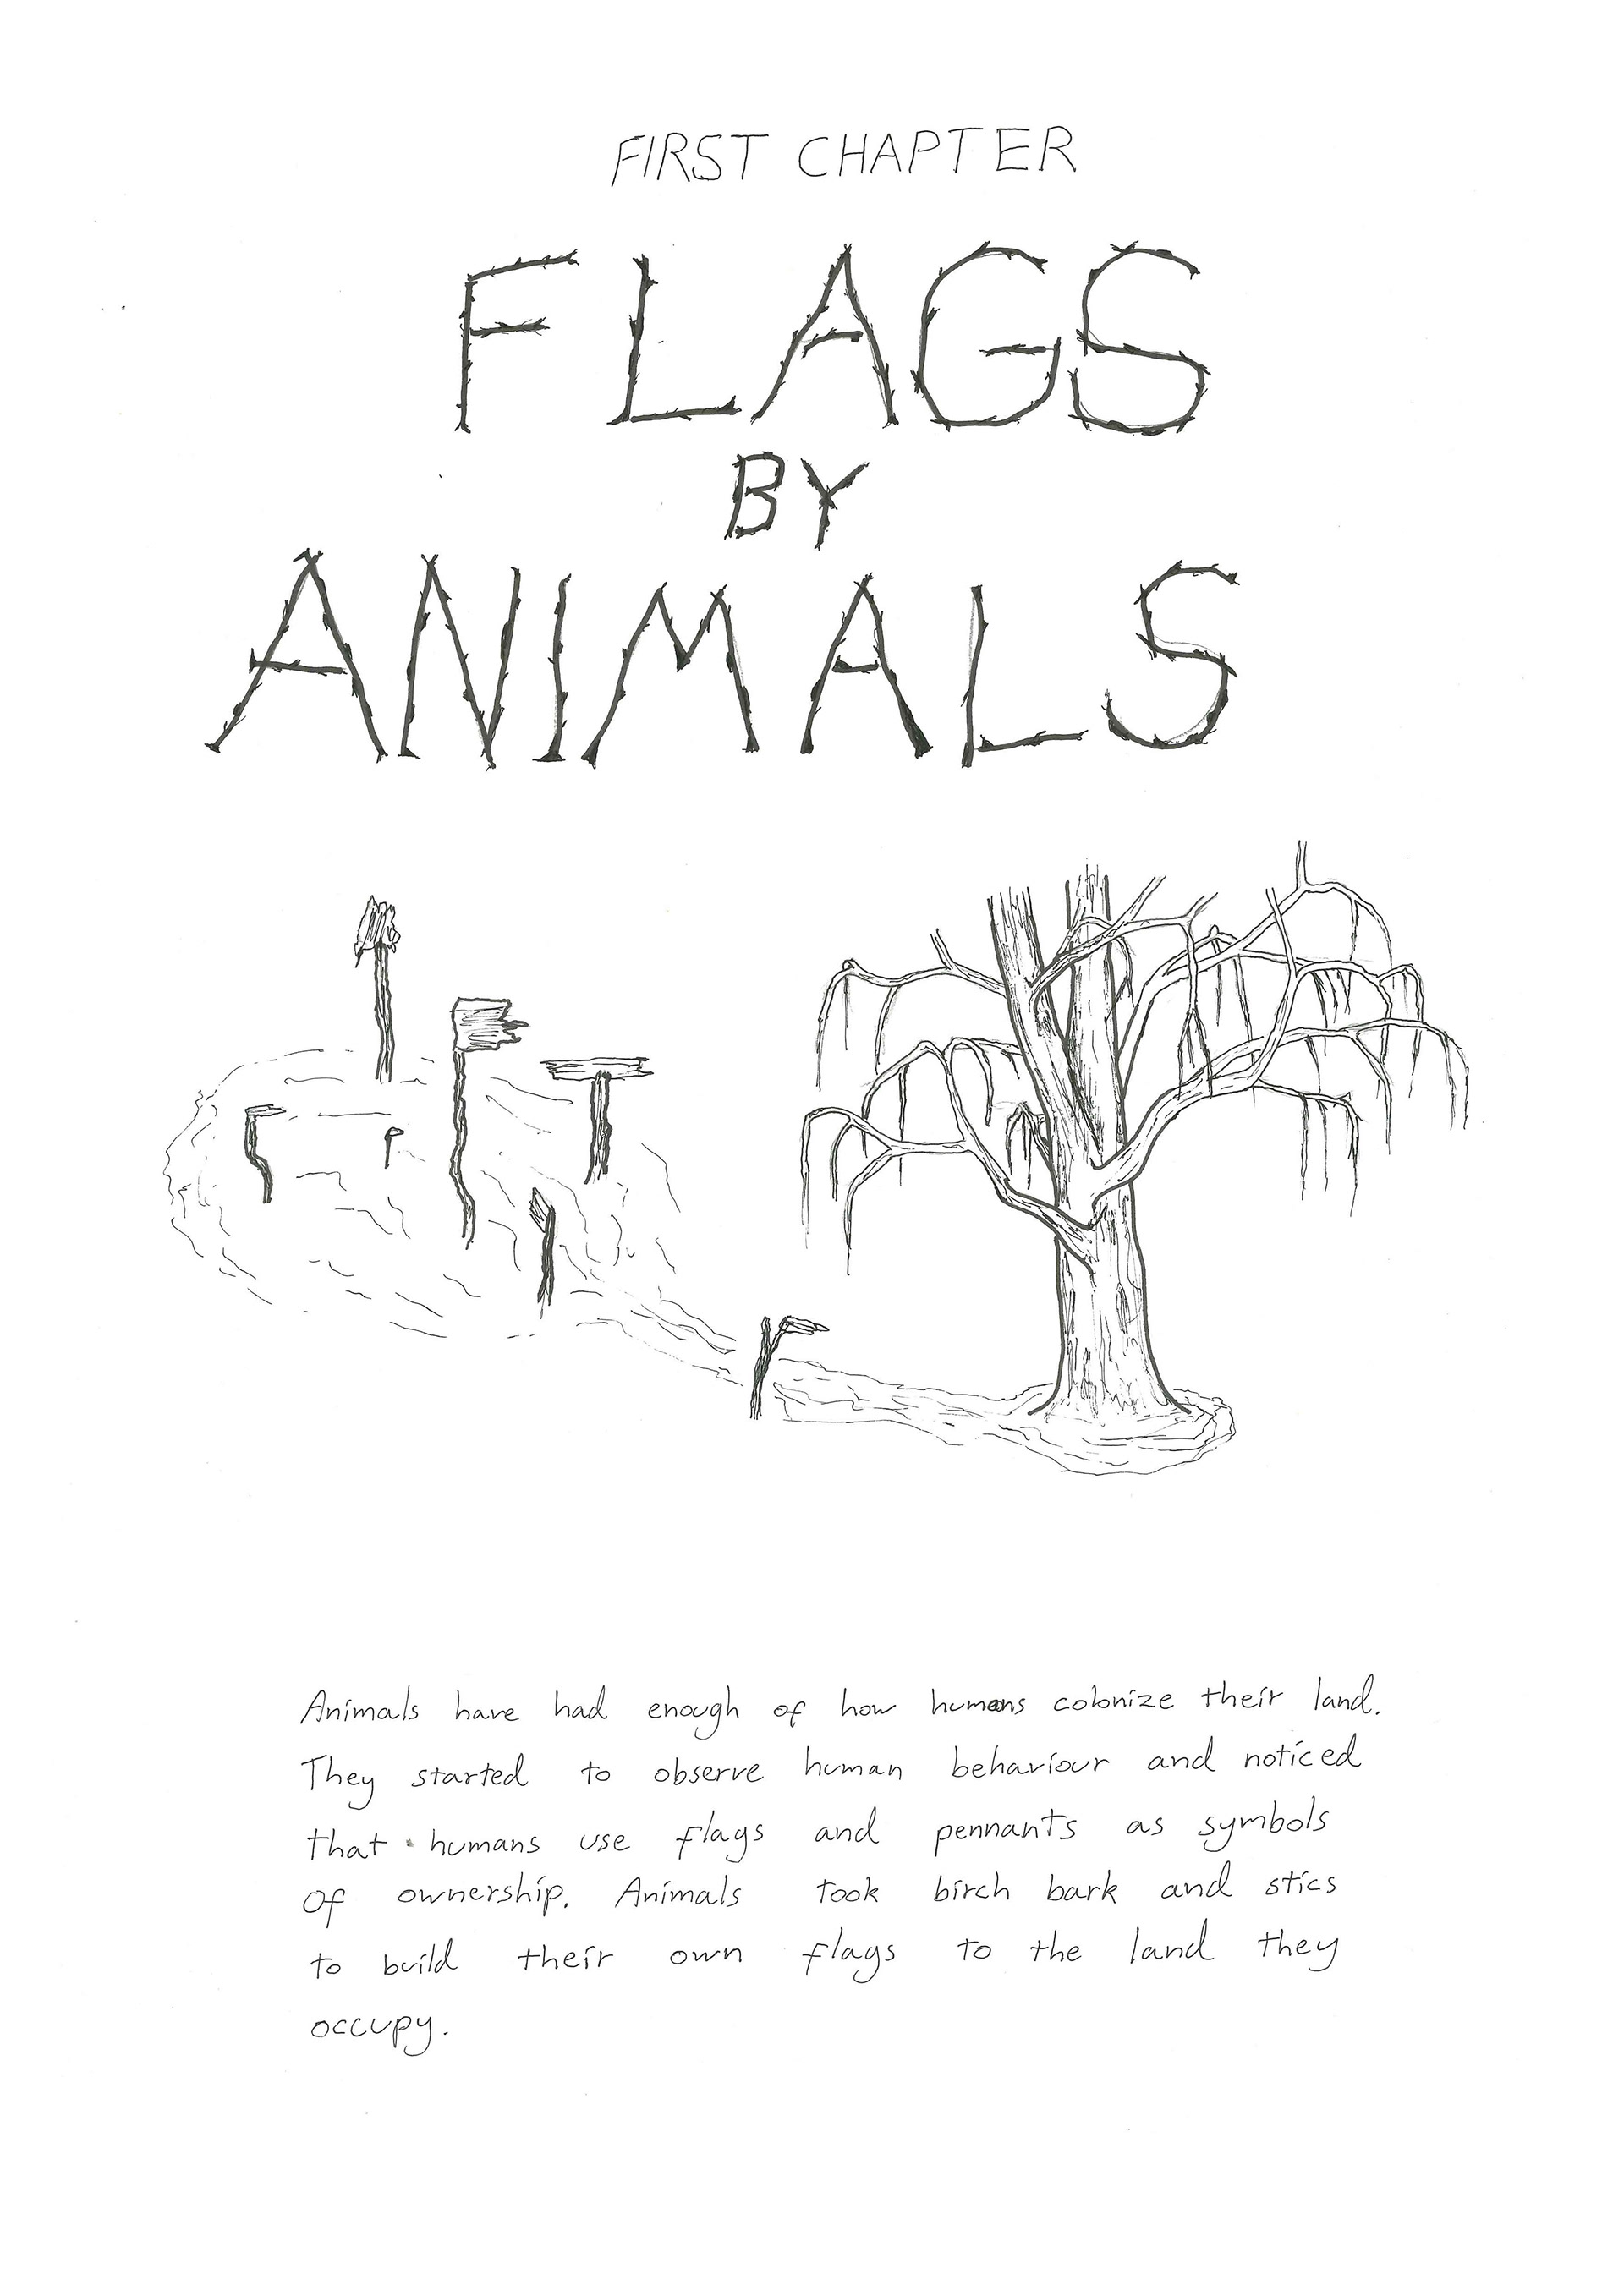 FIRST CHAPTER
FLAGS
BY
ANIMALS
Animals have had enough of how humans colonize their land.
They started to observe human behaviour and noticed
that humans use flags and pennants as symbols
of ownership. Animals took birch bark and stics
to build their own flags to the land they
occupy.